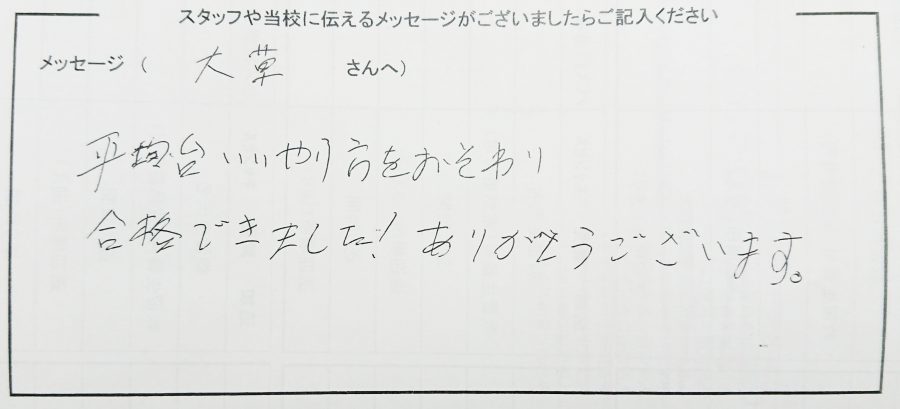 スタッフや当校に伝えるメッセージがございましたらご記入ください
メッセージ ( 大草 さんへ)
平均台いいやり方をおそわり
合格できました! ありがとうございます。